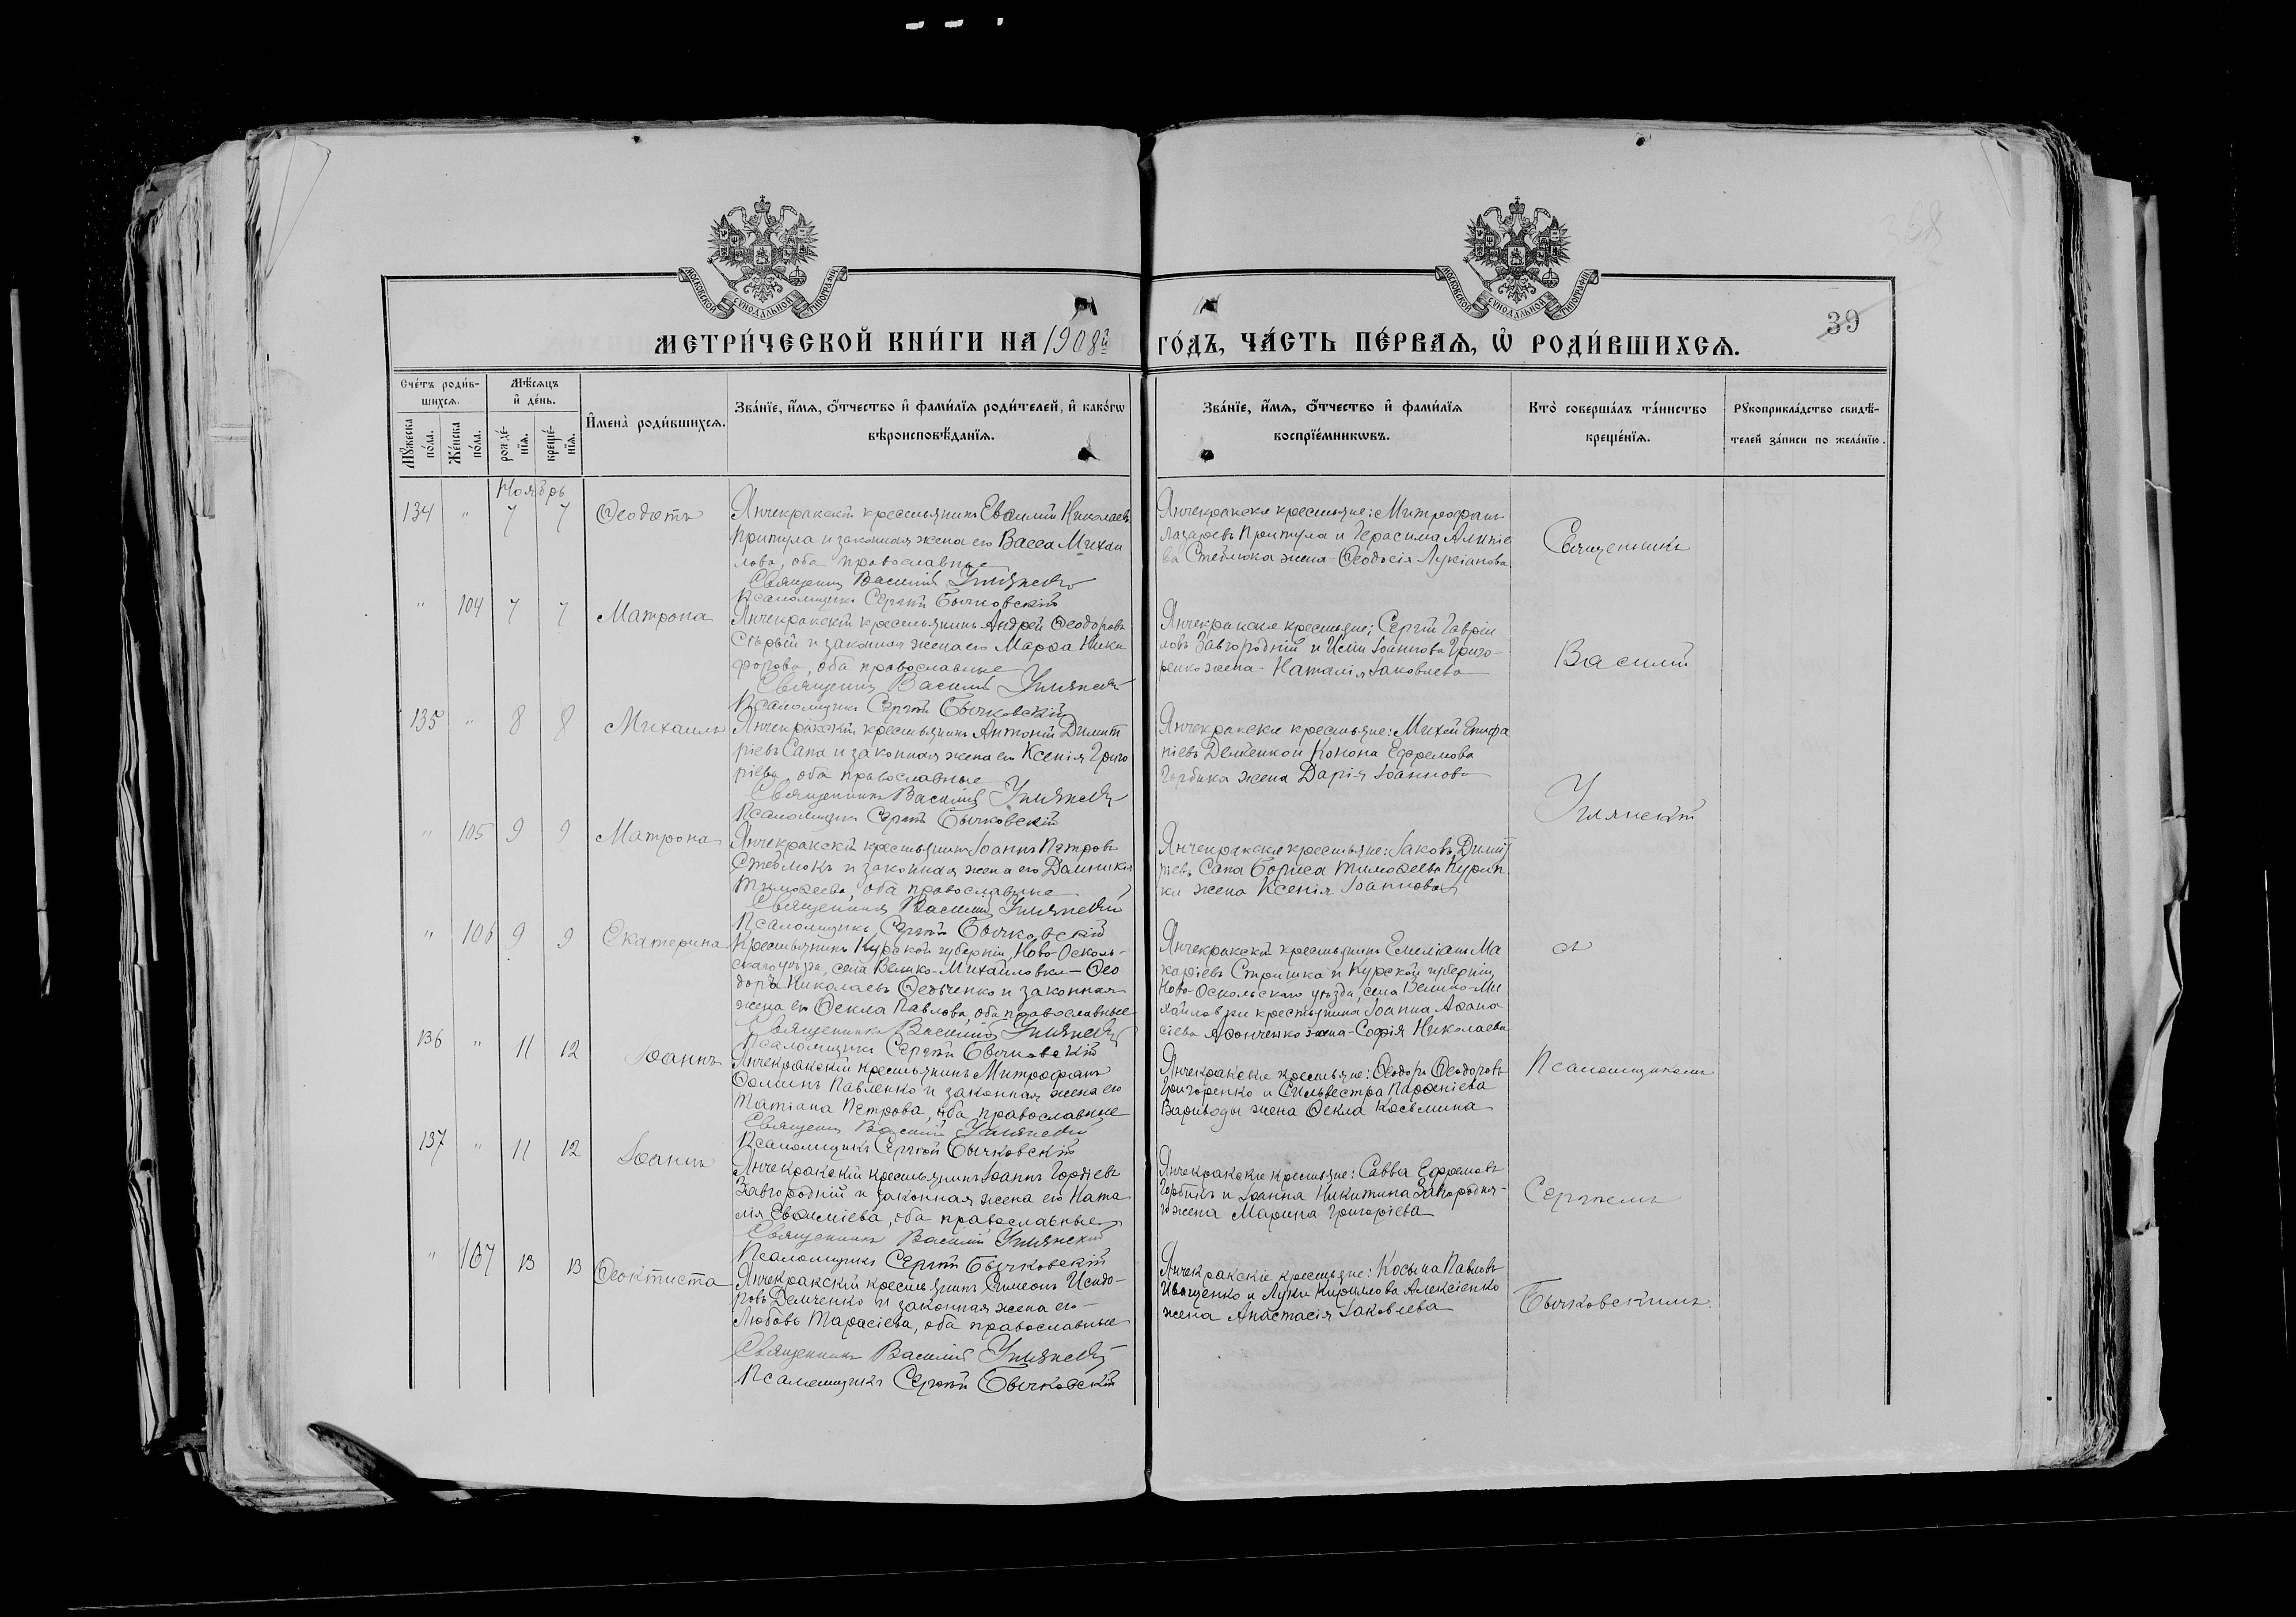 МОСКОВСКОЙ СѴНОДАЛЬНОЙ ТИПОГРАФІИ
МОСКОВСКОЙ СѴНОДАЛЬНОЙ ТИПОГРАФІИ
39
МЕТРИ́ЧЕСКОЙ КНИ́ГИ НА 1908й ГО́ДЪ, ЧА́СТЬ ПЕ́РВАѦ, Ѡ҆ РОДИ́ВШИХСѦ.
Сче́тъ роди́в-
шихсѧ.
Мѣ́сѧцъ
и҆ де́нь.
Мꙋ́жеска
по́ла.
Же́нска
по́ла.
рожде́-
нїѧ.
креще́-
нїѧ.
И҆мена̀ роди́вшихсѧ.
Зва́нїе, и҆́мѧ, ѻ҆́тчество и҆ фами́лїѧ роди́телей, и҆ како́гѡ
вѣроисповѣ́данїѧ.
Зва́нїе, и҆́мѧ, ѻ҆́тчество и҆ фами́лїѧ
воспрїе́мникѡвъ.
Кто̀ соверша́лъ та́инство
креще́нїѧ.
Рꙋкоприкла́дство свидѣ́-
телей за́писи по жела́нїю.
Ноябрь
134 " 7 7 Ѳеодотъ
Янчекракскій крестьянинъ Евѳимій Николаевъ
Притула и законная жена его Васса Михаи
лова, оба православные
Священникъ Василій Улянскій
Псаломщикъ Сергій Бычковскій
Янчекракскіе крестьяне: Митрофанъ
Лазаревъ Притула и Герасима Алипіе
ва Стеблюка жена Ѳеодосія Лукіанова
Священникъ
" 104 7 7 Матрона
Янчекракскій крестьянинъ Андрей Ѳеодоровъ
Сѣрый и законная жена его Марѳа Ники
форова, оба православные
Священникъ Василій Улянскій
Псаломщикъ Сергій Бычковскій
Янчекракскіе крестьяне: Сергій Гавріи
ловъ Завгородній и Іоаннова Григо-
ренко жена - Наталія Іаковлева
Василій
135 " 8 8 Михаилъ
Янчекракскій крестьянинъ Антоній Димит
ріевъ Сапа и законная жена его Ксенія Григо
ріева, оба православные
Священникъ Василій Улянскій
Псаломщикъ Сергій Бычковскій
Янчекракскіе крестьяне: Михей Епифа
ніевъ Демченко и Конона Ефремова
Горбика жена Дарія Іоаннова
Улянскій
" 105 9 9 Матрона
Янчекракскій крестьянинъ Іоаннъ Петровъ
Стеблюкъ и законная жена его Домникія
Тимоѳеева, оба православные
Священникъ Василій Улянскій
Псаломщикъ Сергій Бычковскій
Янчекракскіе крестьяне: Іаковъ Димит
ріевъ Сапа Бориса Тимоѳеева
жена Ксенія Іоаннова
" 106 9 9 Екатерина
Крестьянинъ Курской губерніи, Ново-Осколь-
скаго уѣзда, села Велико-Михайловки - Ѳео
доръ Николаевъ и законная
жена его Ѳекла Павлова, оба православные
Священникъ Василій Улянскій
Псаломщикъ Сергій Бычковскій
Янчекракскій крестьянинъ Емеліанъ Ма
каріевъ и Курской губерніи,
Ново-Оскольскаго уѣзда, села Велико-Ми
хайловки крестьянина Іоанна Аѳана
сіева Аѳонченко жена - Софія Николаева
съ
136 " 11 12 Іоаннъ
Янчекракскій крестьянинъ Митрофанъ
Ѳоминъ Павленко и законная жена его
Татіана Петрова, оба православные
Священникъ Василій Улянскій
Псаломщикъ Сергій Бычковскій
Янчекракскіе крестьяне: Ѳеодоръ Ѳеодоровъ
Григоренко и Сильвестра Парѳеніева
Вариводы жена Ѳекла Косьмина
Псаломщикомъ
137 " 11 12 Іоаннъ
Янчекракскій крестьянинъ Іоаннъ Гордіевъ
Завгородній и законная жена его Ната
лія Евѳиміева, оба православные
Священникъ Василій Улянскій
Псаломщикъ Сергій Бычковскій
Янчекракскіе крестьяне: Савва Ефремовъ
Горбикъ и Іоанна Никитина Завгородня-
го жена Марина Григоріева
Сергіемъ
" 107 13 13 Ѳеоктиста
Янчекракскій крестьянинъ Симеонъ Исидо-
ровъ Демченко и законная жена его -
Любовь Тарасіева, оба православные
Священникъ Василій Улянскій
Псаломщикъ Сергій Бычковскій
Янчекракскіе крестьяне: Косьма Павловъ
Иващенко и Луки Кириллова Алексіенко
жена Анастасія Іаковлева
Бычковскимъ